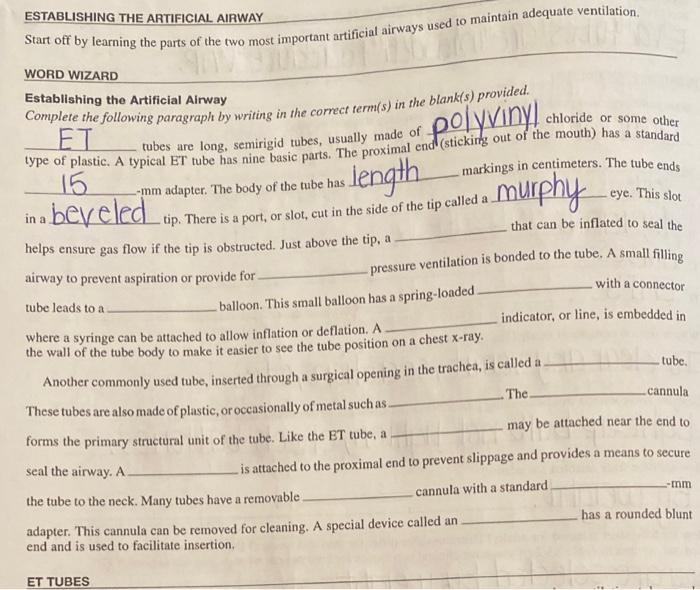 ESTABLISHING THE ARTIFICIAL AIRWAY
Start off by learning the parts of the two most important artificial airways used to maintain adequate ventilation.
WORD WIZARD
Establishing the Artificial Airway
Complete the following paragraph by writing in the correct term(s) in the blank(s) provided.
ET tubes are long, semirigid tubes, usually made of polyvinyl chloride or some other
type of plastic. A typical ET tube has nine basic parts. The proximal end (sticking out of the mouth) has a standard
15 -mm adapter. The body of the tube has length markings in centimeters. The tube ends
in a beveled tip. There is a port, or slot, cut in the side of the tip called a murphy eye. This slot
helps ensure gas flow if the tip is obstructed. Just above the tip, a ____ that can be inflated to seal the
airway to prevent aspiration or provide for ____ pressure ventilation is bonded to the tube. A small filling
tube leads to a ____ balloon. This small balloon has a spring-loaded ____ with a connector
where a syringe can be attached to allow inflation or deflation. A ____ indicator, or line, is embedded in
the wall of the tube body to make it easier to see the tube position on a chest x-ray.
Another commonly used tube, inserted through a surgical opening in the trachea, is called a ____ tube.
These tubes are also made of plastic, or occasionally of metal such as ____. The ____ cannula
forms the primary structural unit of the tube. Like the ET tube, a ____ may be attached near the end to
seal the airway. A ____ is attached to the proximal end to prevent slippage and provides a means to secure
the tube to the neck. Many tubes have a removable ____ cannula with a standard ____-mm
adapter. This cannula can be removed for cleaning. A special device called an ____ has a rounded blunt
end and is used to facilitate insertion.
ET TUBES